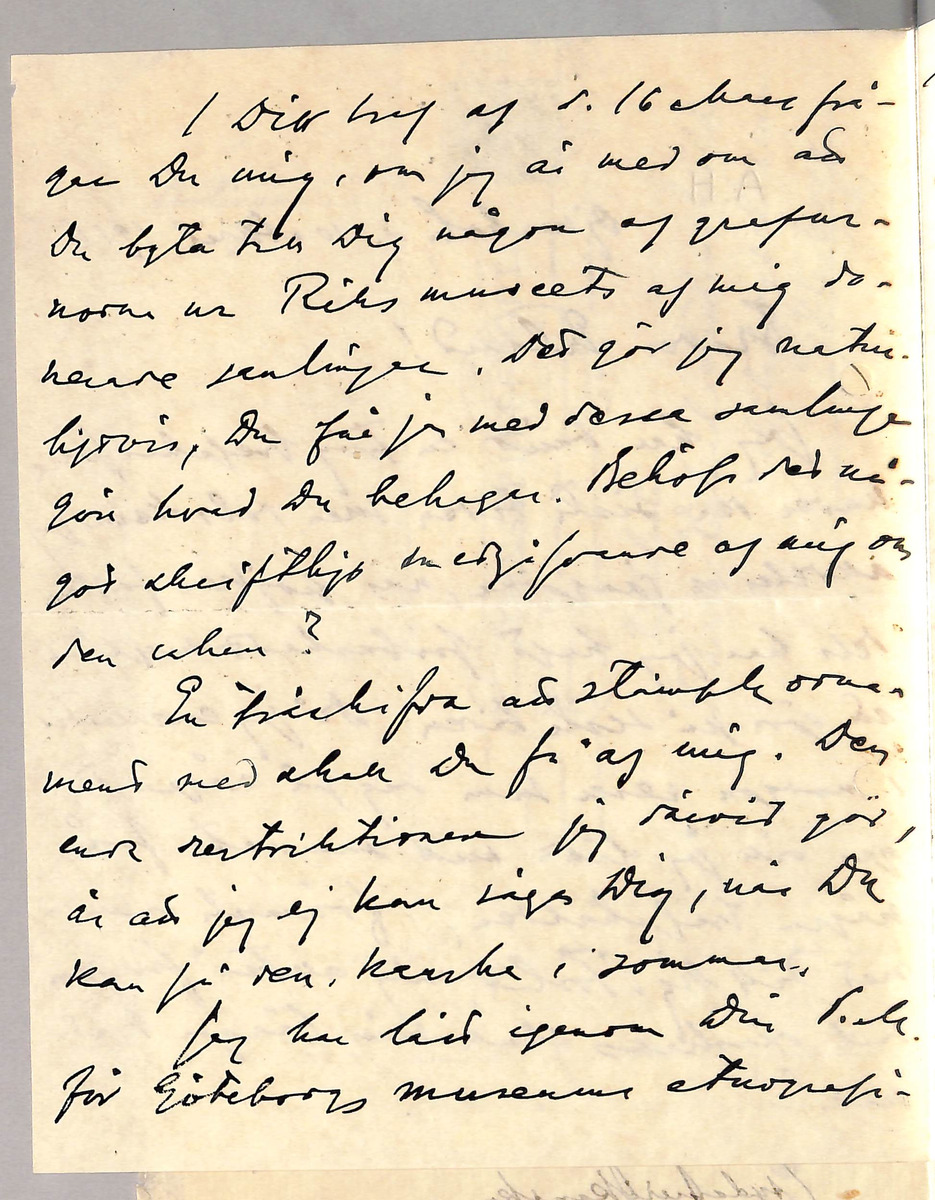 I Ditt bref af d. 16 Mars frå-
gar Du mig, om jag är med om att
Du byta till Dig någon af grafur-
norna ur Riksmuseets af mig do-
nerade samlingar. Det gör jag natur-
ligtvis, Du får ju med dessa samlingar
göra hvad Du behagar. Behöfs det nå-
got skriftligt medgifvande af mig om
den saken?
En träskifva att stämpla orna-
ment med skall Du få af mig. Den
enda restriktionen jag därvid gör,
är att jag ej kan säga Dig, när Du
kan få den, kanske i sommar.
Jag har läst igenom Din P.M.
för Göteborgs museums etnografi-